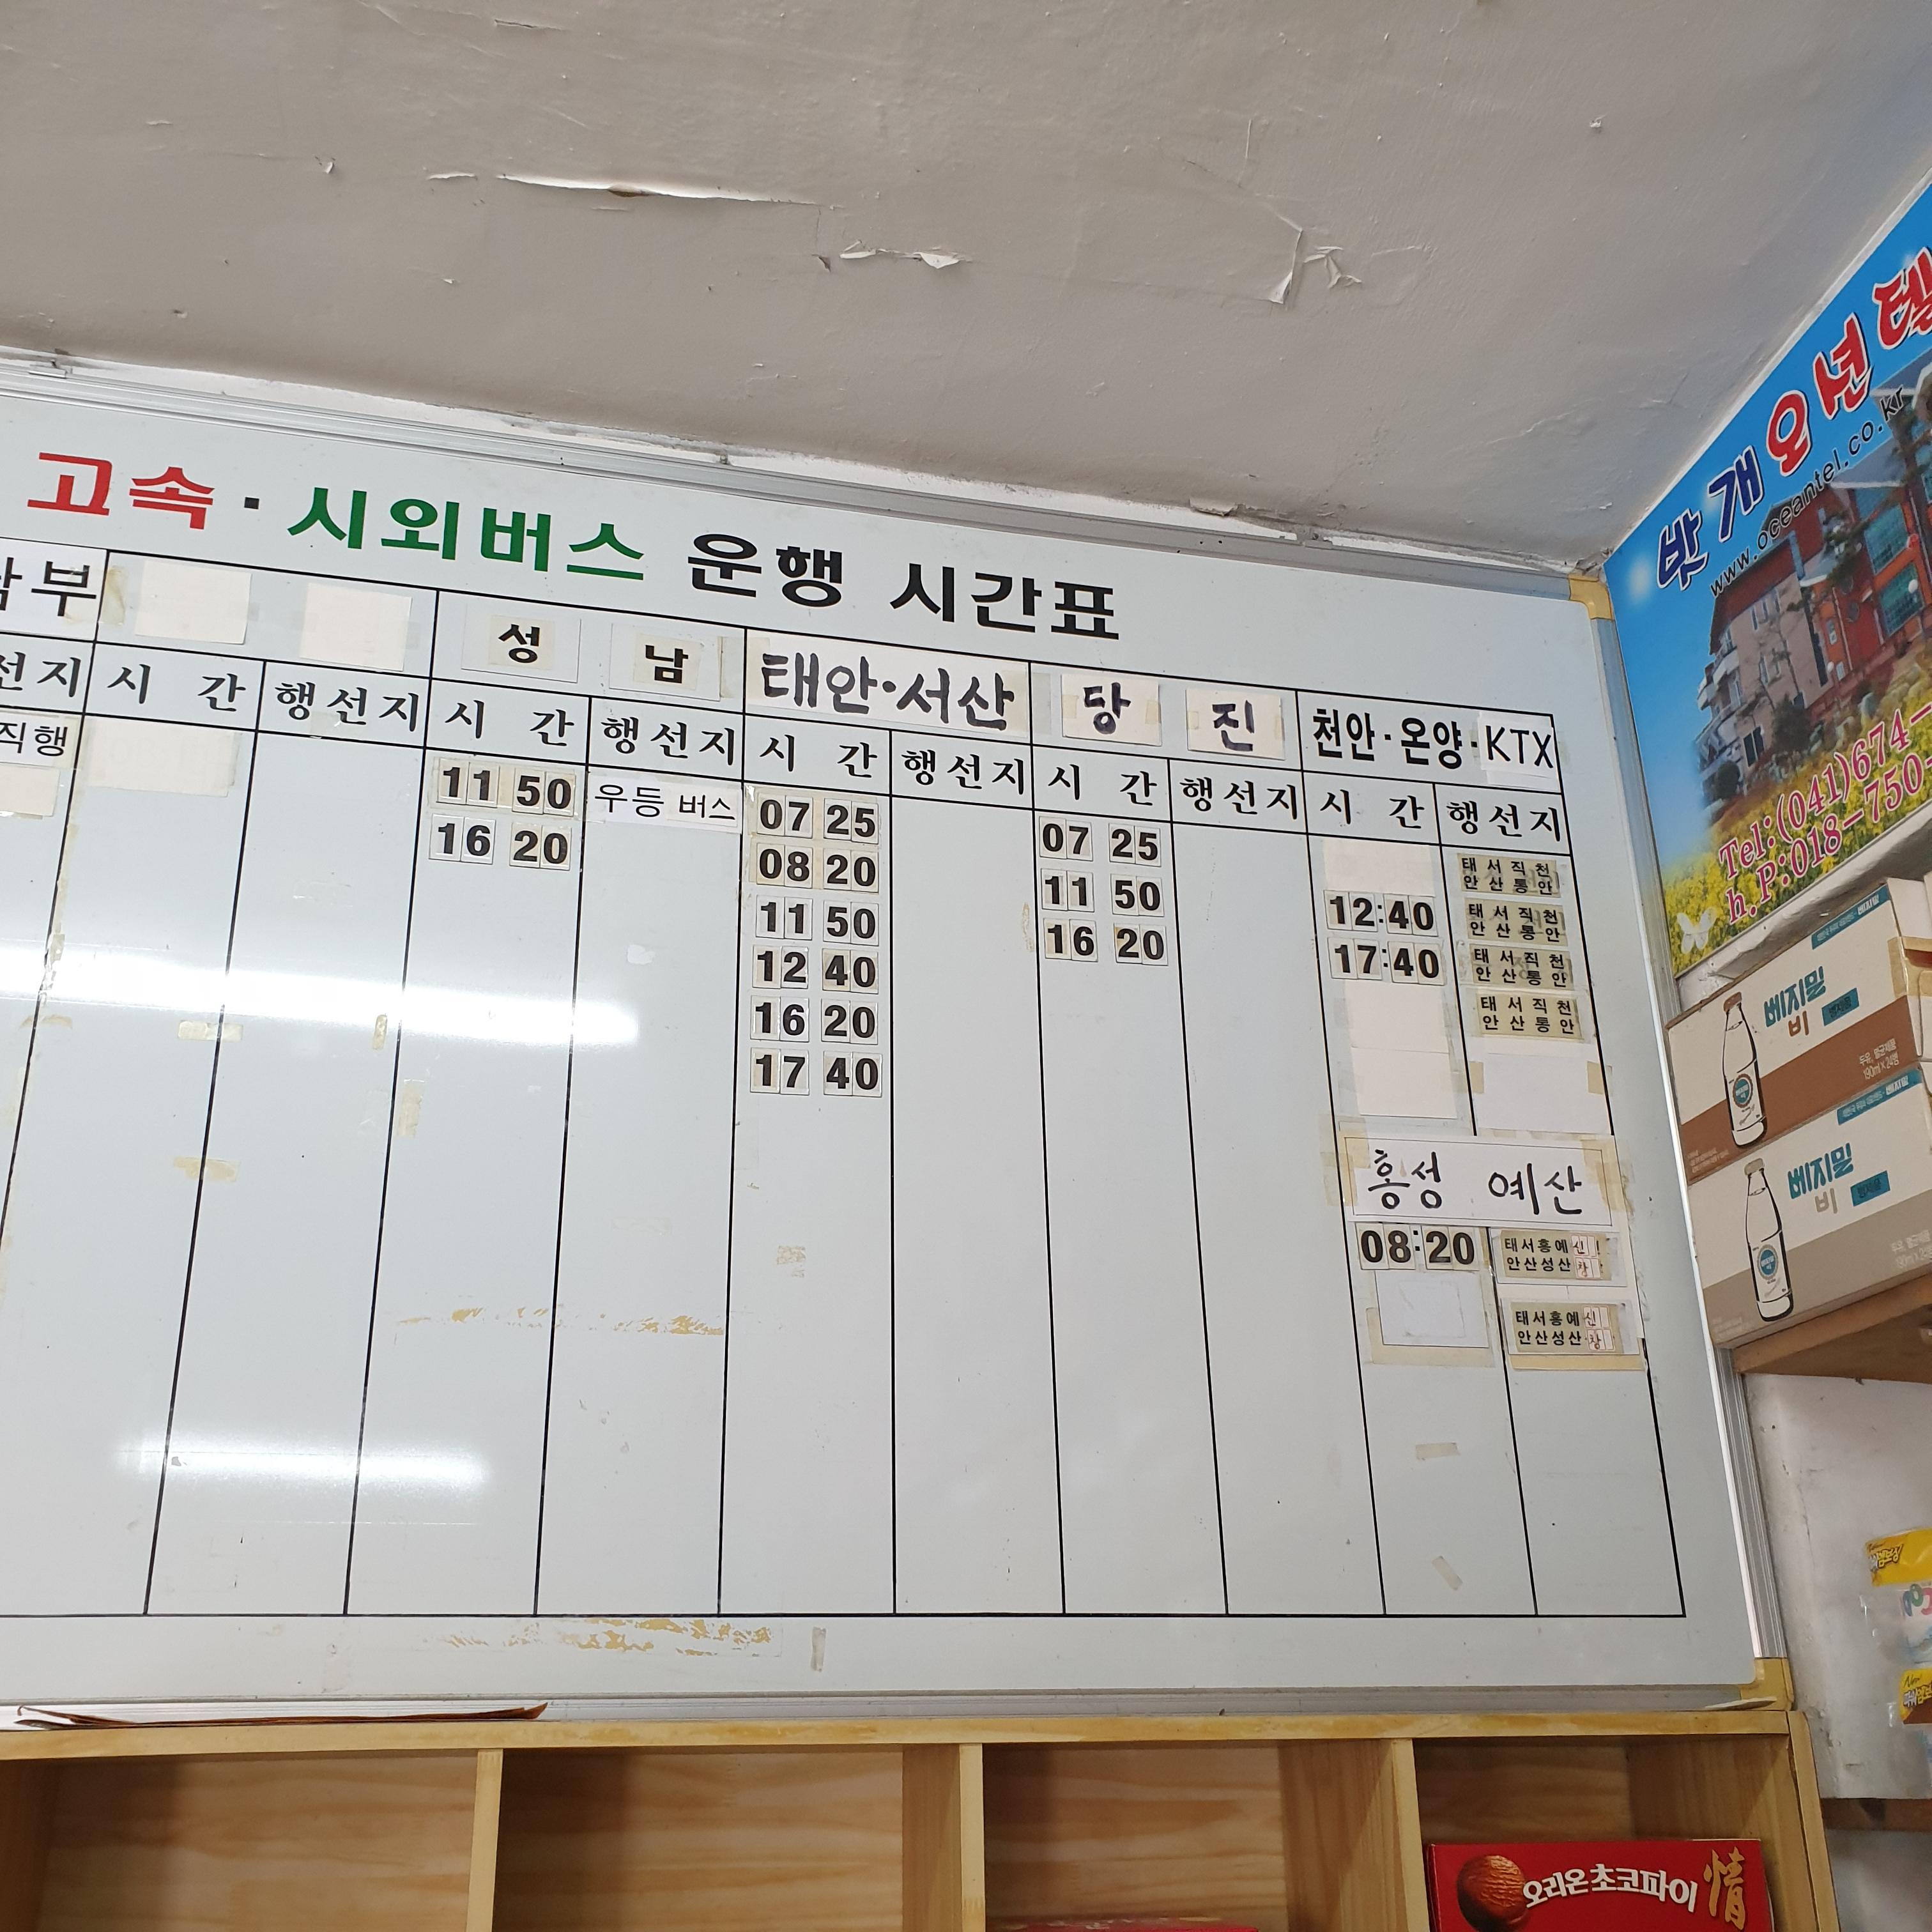 고속·시외버스 운행 시간표
부 성 남 태안·서산 당 진 천안·온양·KTX
선지 시 간 행선지 시 간 행선지 시 간 행선지 시 간 행선지 시 간 행선지
직행
11 50 우등 버스
16 20
07 25
08 20
11 50
12 40
16 20
17 40
07 25
11 50
16 20
태 서 직 천
안 산 통 안
12:40 태 서 직 천
안 산 통 안
17:40 태 서 직 천
안 산 통 안
태 서 직 천
안 산 통 안
홍성 예산
08:20 태서홍예신
안산성산창
태서홍예신
안산성산창
밧개오션텔
www.oceantel.co.kr
Tel:(041)674-
h.P:018-750-
베지밀
비
190ml x 24병
베지밀
비
오리온초코파이 情